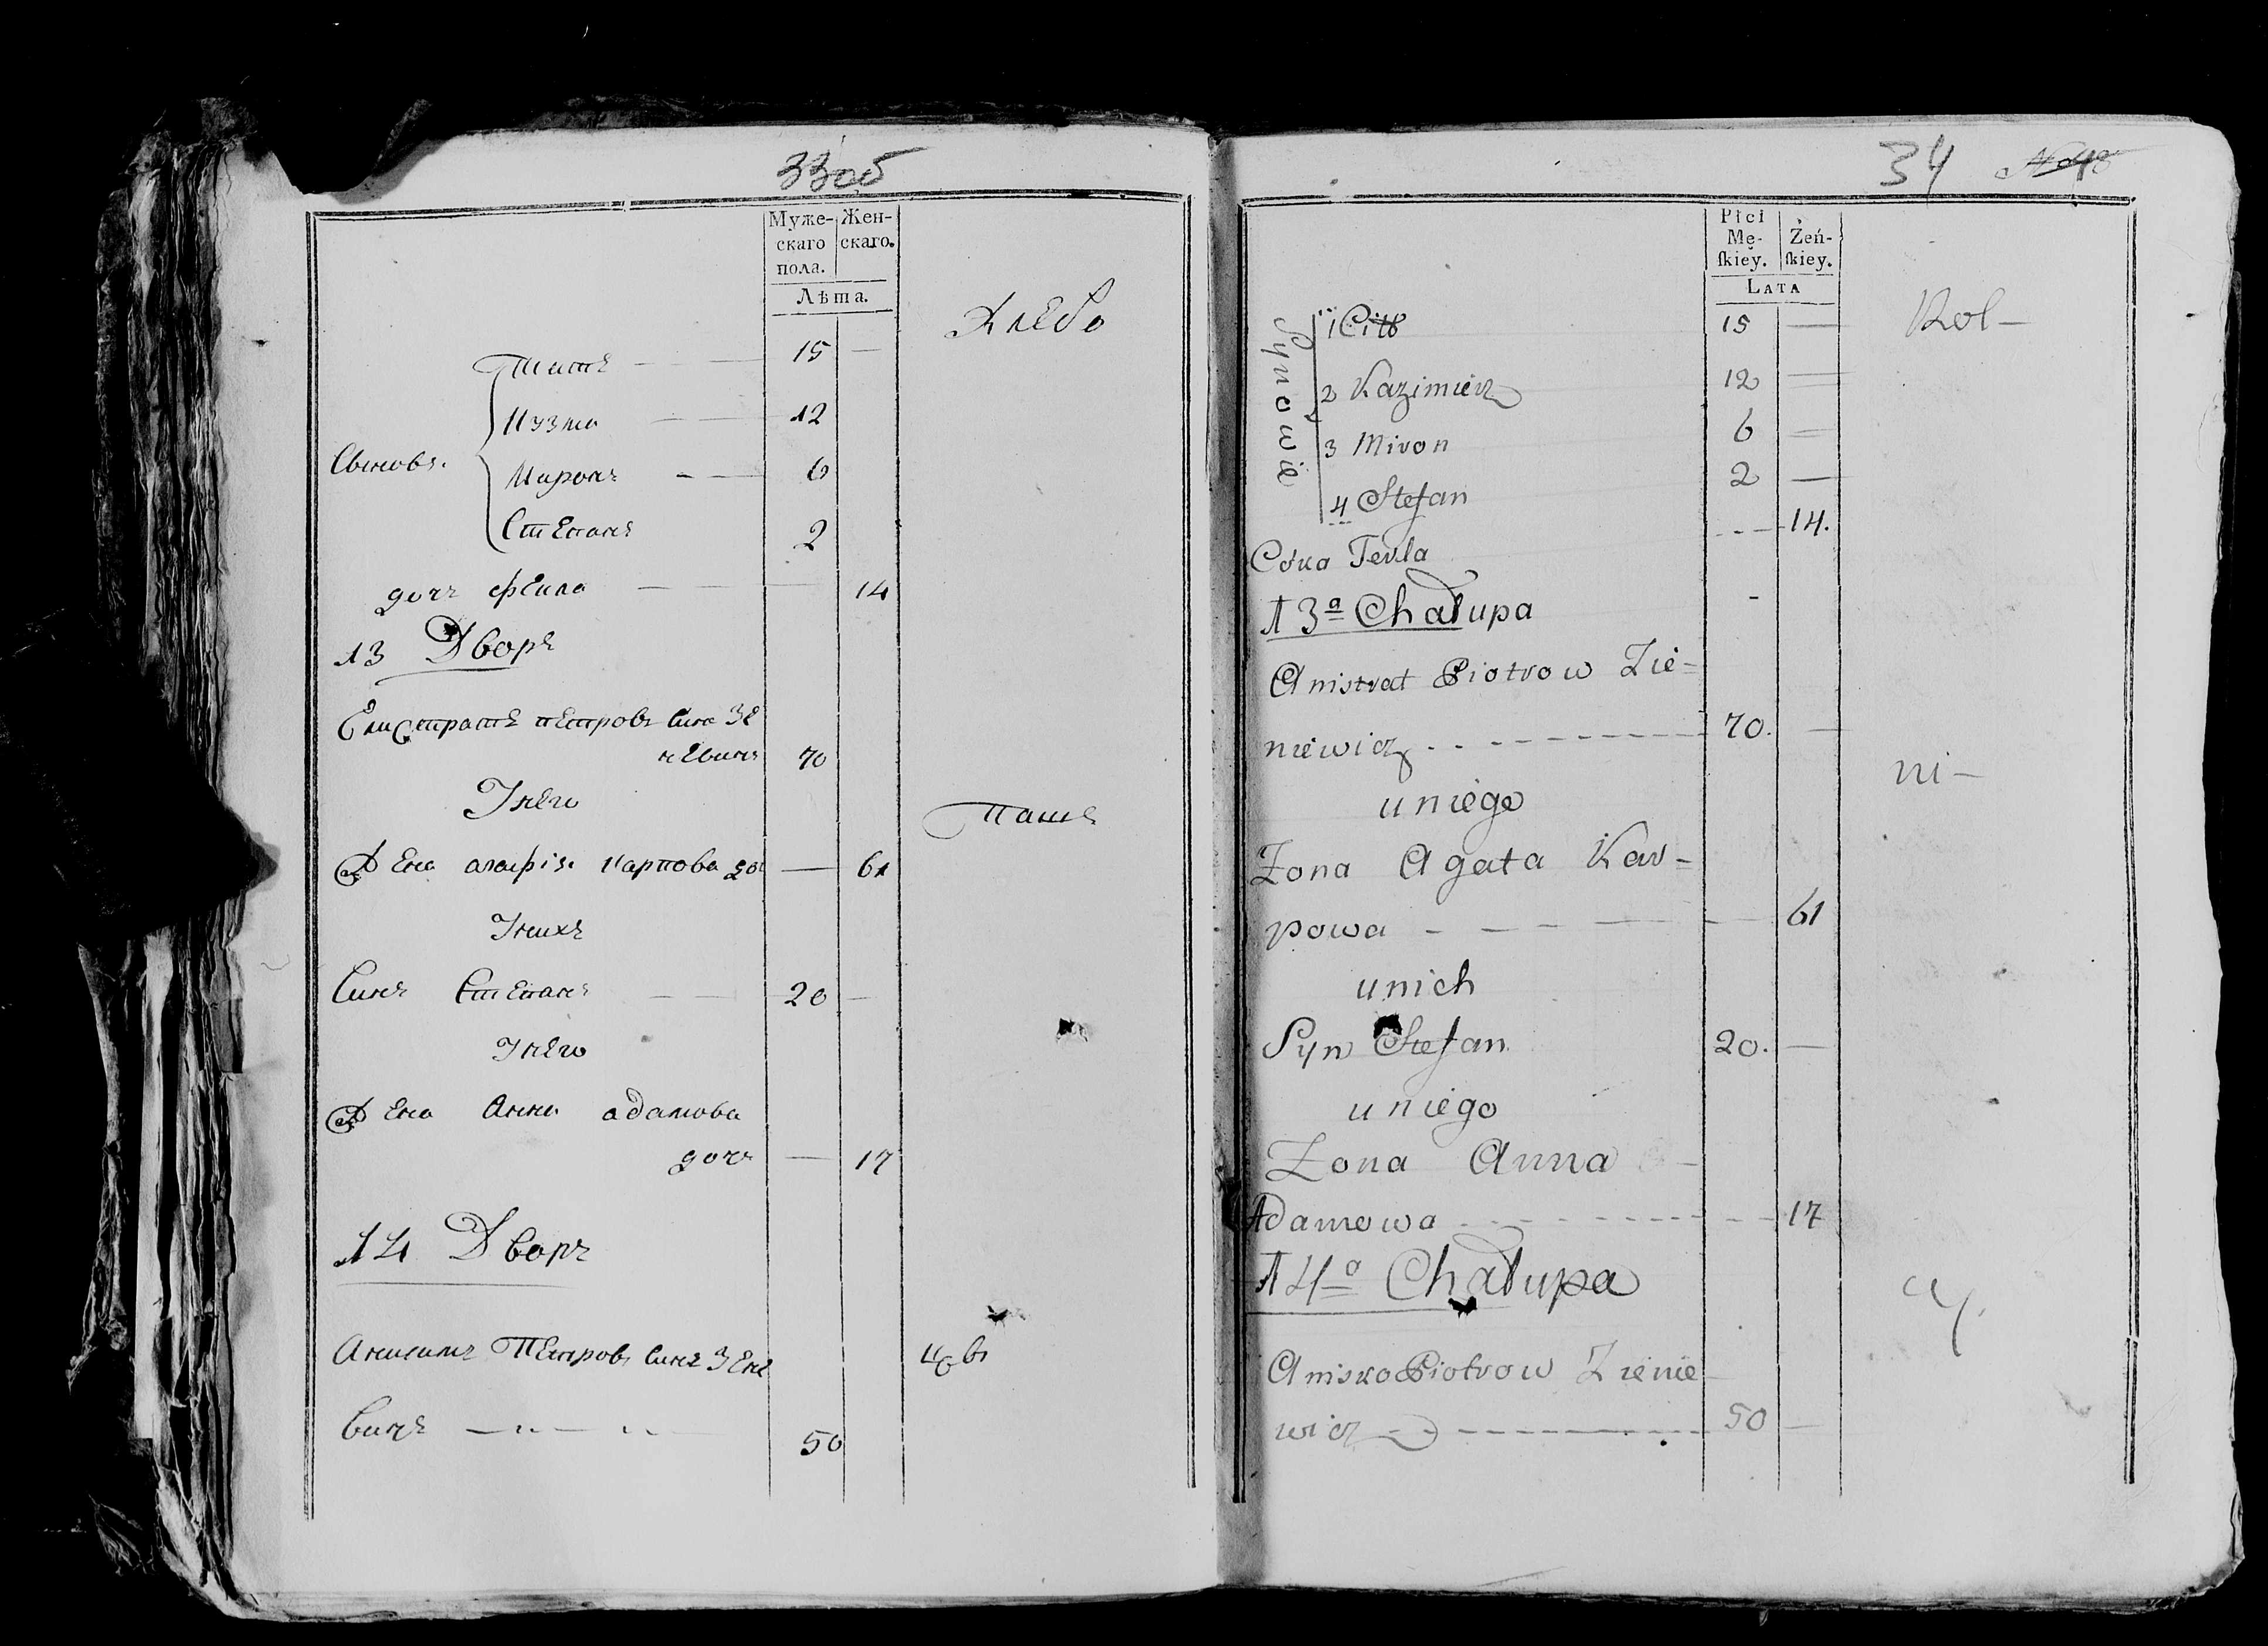 33об
Муже-
скаго
пола.
Жен-
скаго.
Лѣта.
Хлебо
Титъ — 15 —
Кузма — 12
Сынов.
Миронъ — 6
Степанъ 2
дочь Фекла — 14
13 Дворъ
Елистратъ Петровъ Синъ Зе
невичъ 70
У него
Паш
Жена Агафия Карпова дочь — 61
У нихъ
Синъ Степанъ — 20 —
У него
Жена Анна Адамова
дочь — 17
14 Дворъ
Анисимъ Петровъ Синъ Зене
цовъ
вичъ — 50
34
Płci
Mę-
ſkiey.
Żeń-
ſkiey.
Lata
Synowie
1 Cit 15 —
Rol-
2 Kazimierz 12 —
3 Miron 6 —
4 Stefan 2 —
Córka Tekla --- 14.
13a Chałupa
Anistrat Piotrow Zie-
niewicz 70. —
ni-
u niego
Żona Agata Kar-
powa — 61
u nich
Syn Stefan 20. —
u niego
Żona Anna
Adamowa 17
14a Chałupa
cy.
Anisko Piotrow Zienie
wicz 50 —